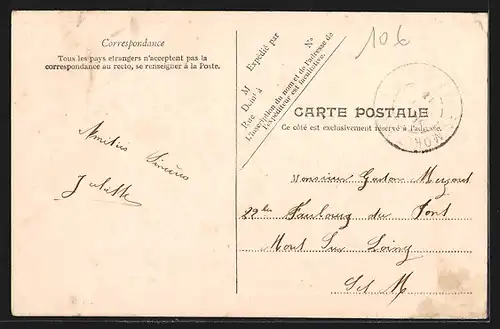 Correspondance
Tous les pays étrangers n'acceptent pas la
correspondance au recto, se renseigner à la Poste.
Expédié par
M
Demt à
Rue
No
L'inscription du nom et de l'adresse de
l'expéditeur est facultative.
106
CARTE POSTALE
Ce côté est exclusivement réservé à l'adresse.
Amitiés Sincères
Juliette
Monsieur Gaston
29 bis Faubourg du Pont
Mont Sur Loing
Set M